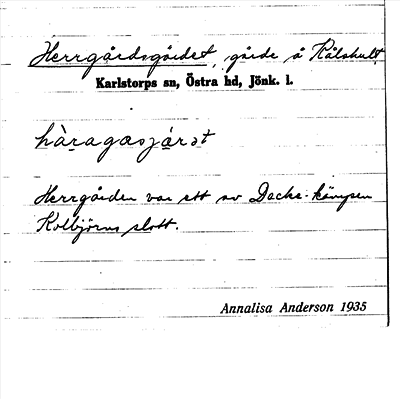 Herrgårdsgärdet, gärde å Kålshult
Karlstorps sn, Östra hd, Jönk. l.
hàragasjárət
Herrgården var ett av Dacke-kämpen
Kolbjörns slott.
Annalisa Anderson 1935